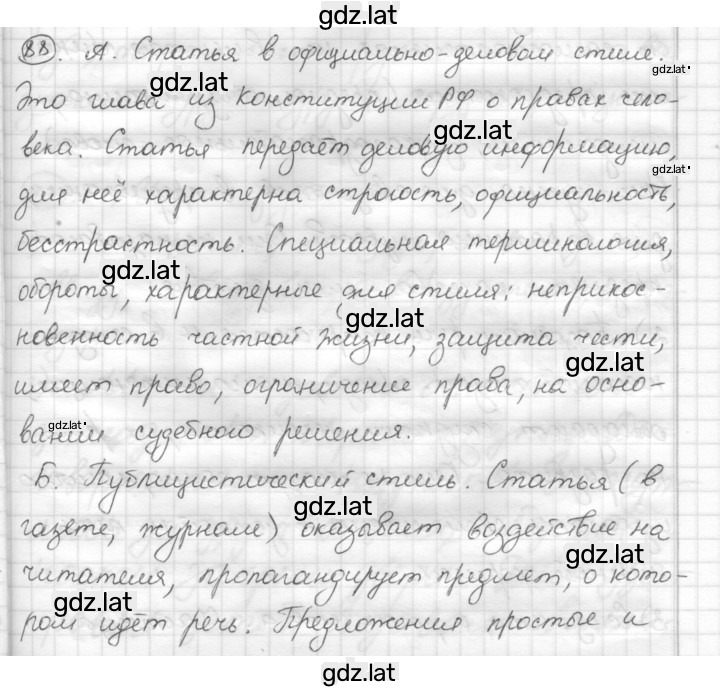 gdz.lat
88. А. Статья в официально-деловом стиле.
gdz.lat
gdz.lat
Это глава из Конституции РФ о правах чело-
gdz.lat
века. Статья передаёт деловую информацию,
gdz.lat
для неё характерна строгость, официальность,
бесстрастность. Специальная терминология,
gdz.lat
обороты, характерные для стиля: неприкос-
gdz.lat
новенность частной жизни, защита чести,
gdz.lat
имеет право, ограничение права, на осно-
gdz.lat
вании судебного решения.
Б. Публицистический стиль. Статья (в
gdz.lat
газете, журнале) оказывает воздействие на
gdz.lat
читателя, пропагандирует предмет, о кото-
gdz.lat
ром идёт речь. Предложения простые и
gdz.lat